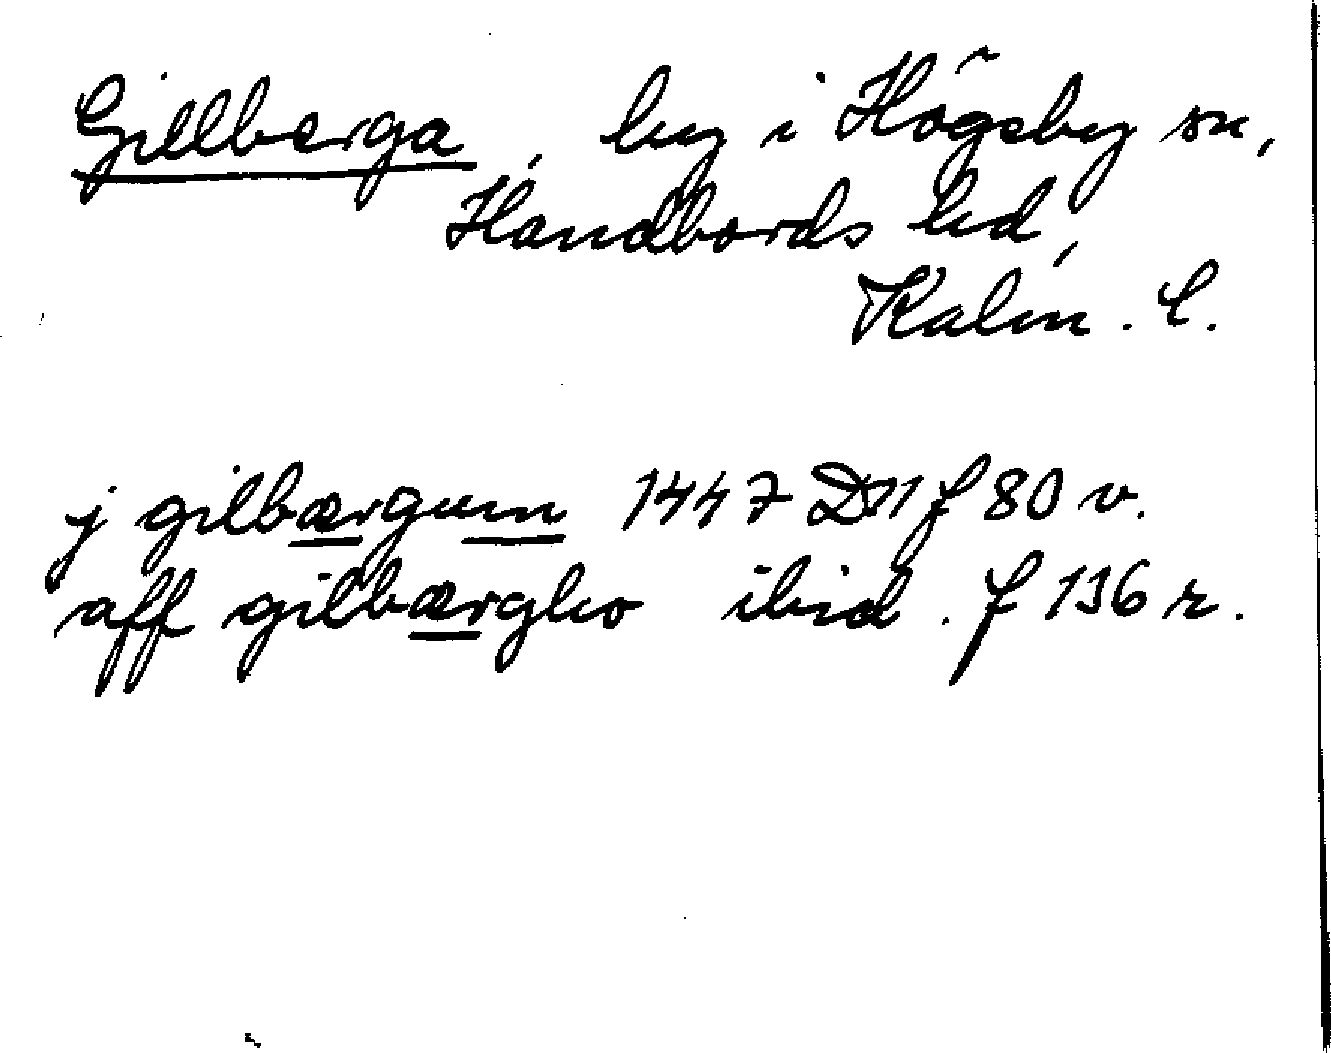 Gillberga, by i Högsby sn,
Handbords hd,
Kalm. l.
j gilbærgum 1447 D11 f 80 v.
aff gilbærgho ibid. f 136 r.